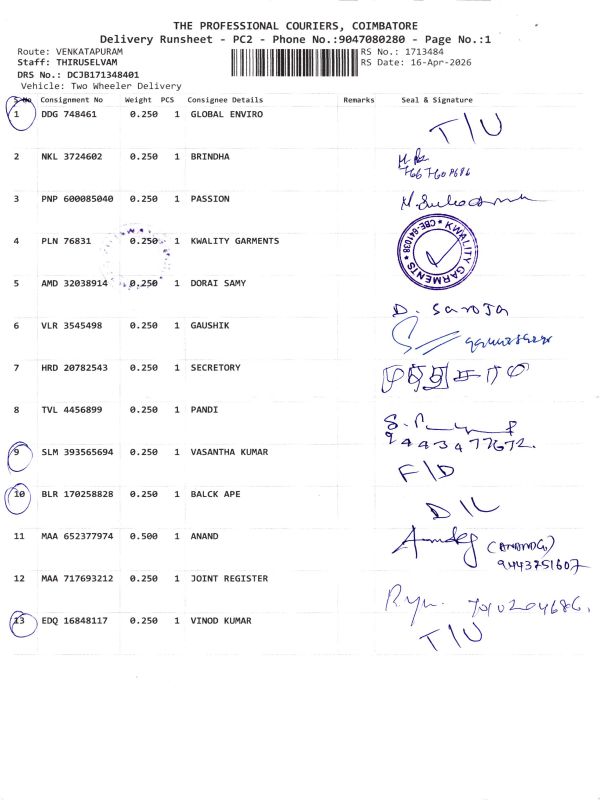 THE PROFESSIONAL COURIERS, COIMBATORE
Delivery Runsheet - PC2 - Phone No.:9047080280 - Page No.:1
Route: VENKATAPURAM
RS No.: 1713484
Staff: THIRUSELVAM
RS Date: 16-Apr-2026
DRS No.: DCJB171348401
Vehicle: Two Wheeler Delivery
S No Consignment No Weight PCS Consignee Details Remarks Seal & Signature
1 DDG 748461 0.250 1 GLOBAL ENVIRO T/U
2 NKL 3724602 0.250 1 BRINDHA
3 PNP 600085040 0.250 1 PASSION
4 PLN 76831 0.250 1 KWALITY GARMENTS
KWALITY GARMENTS * CBE-641038 *
5 AMD 32038914 0.250 1 DORAI SAMY
D. Saroja
6 VLR 3545498 0.250 1 GAUSHIK
7 HRD 20782543 0.250 1 SECRETORY
8 TVL 4456899 0.250 1 PANDI
9443477672.
9 SLM 393565694 0.250 1 VASANTHA KUMAR F/D
10 BLR 170258828 0.250 1 BALCK APE D/L
11 MAA 652377974 0.500 1 ANAND
9443751607
12 MAA 717693212 0.250 1 JOINT REGISTER
13 EDQ 16848117 0.250 1 VINOD KUMAR T/U